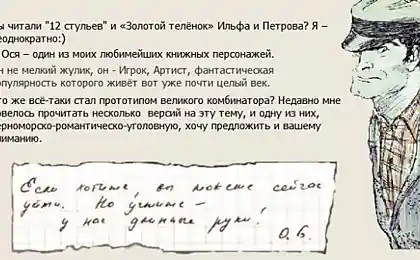 ы читали "12 стульев" и «Золотой телёнок» Ильфа и Петрова? Я –
еоднократно:)
Ося – один из моих любимейших книжных персонажей.
н не мелкий жулик, он - Игрок, Артист, фантастическая
опулярность которого живёт вот уже почти целый век.
то же всё-таки стал прототипом великого комбинатора? Недавно мне
овелось прочитать несколько версий на эту тему, и одну из них,
ерноморско-романтическо-уголовную, хочу предложить и вашему
ниманию.
Если хотите, вы можете сейчас
уйти. Но учтите –
у нас длинные руки!
О. Б.